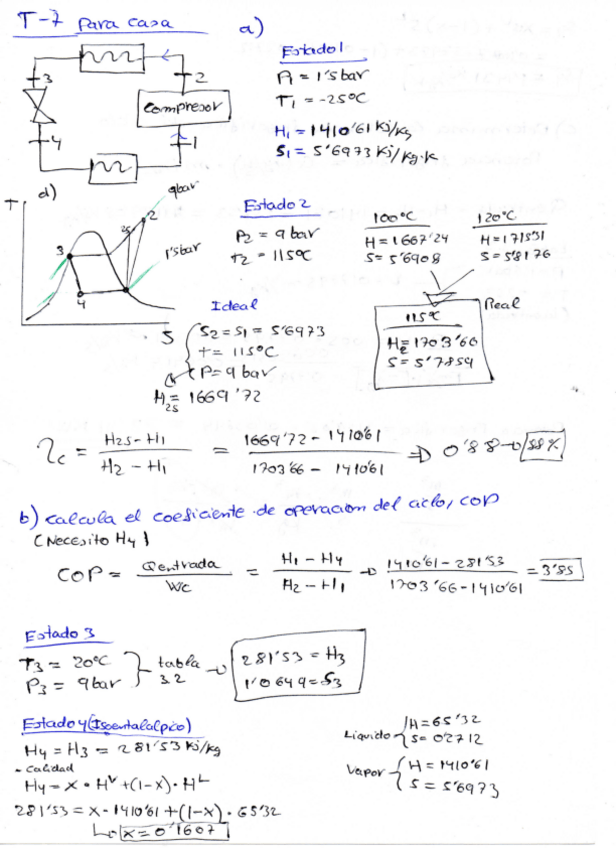 T-7 para casa
a)
3
2
Compresor
4
1
Estado 1
P1 = 1'5 bar
T1 = -25ºC
H1 = 1410'61 Kj/kg
S1 = 5'6973 Kj/kg·K
d)
T
9bar
2
2s
3
1'5bar
4
S
Estado 2
P2 = 9 bar
t2 = 115ºC
100ºC
H = 1667'24
S = 5'6908
120ºC
H = 1715'31
S = 5'8176
Real
115ºC
H2 = 1703'66
S = 5'7859
Ideal
S2 = S1 = 5'6973
t = 115ºC
P = 9 bar
H2s = 1669'72
ηc = H2s - H1 / H2 - H1 = 1669'72 - 1410'61 / 1703'66 - 1410'61 ⇒ 0'88 → 88%
b) calcula el coeficiente de operacion del ciclo, COP
(Necesito H4)
COP = Qentrada / Wc = H1 - H4 / H2 - H1 → 1410'61 - 281'53 / 1703'66 - 1410'61 = 3'85
Estado 3
T3 = 20ºC
P3 = 9bar
tabla
3.2
281'53 = H3
1'0649 = S3
Estado 4 (Isoentalpico)
H4 = H3 = 281'53 Kj/kg
- Calidad
H4 = x · Hv + (1-x) · HL
281'53 = x · 1410'61 + (1-x) · 65'32
x = 0'1607
Liquido
H = 65'32
S = 0'2712
Vapor
H = 1410'61
S = 5'6973